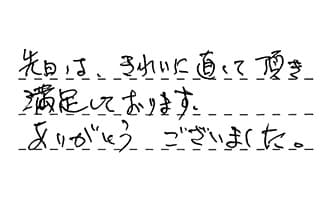 先日は、きれいに直して頂き
満足しております。
ありがとう ございました。